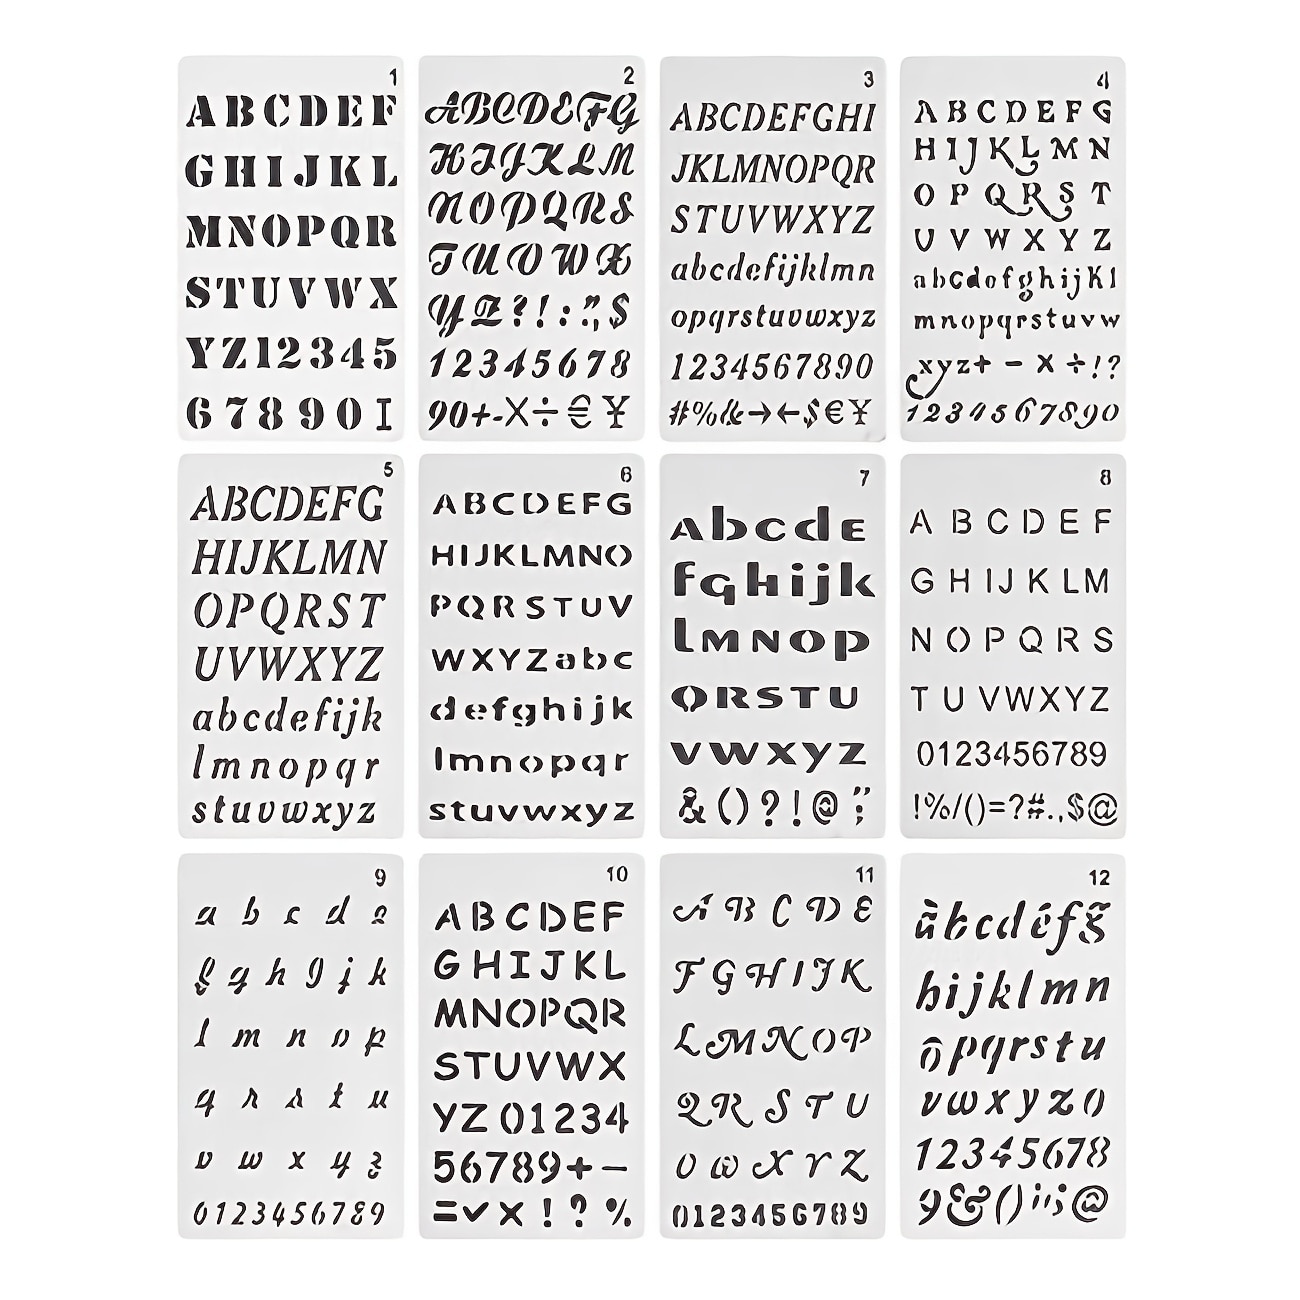 1
ABCDEF
GHIJKL
MNOPQR
STUVWX
YZ12345
67890I
2
ABCDEFG
HIJKLM
NOPQRS
TUVWX
YZ?!:",$
12345678
90+-X÷€¥
3
ABCDEFGHI
JKLMNOPQR
STUVWXYZ
abcdefijklmn
opqrstuvwxyz
1234567890
#%&→←$€¥
4
ABCDEFG
HIJKLMN
OPQRST
UVWXYZ
abcdefghijKl
mnopqrstuvw
xyz+-x÷!?
1234567890
5
ABCDEFG
HIJKLMN
OPQRST
UVWXYZ
abcdefijk
lmnopqr
stuvwxyz
6
ABCDEFG
HIJKLMNO
PQRSTUV
WXYZabc
defghijk
lmnopqr
stuvwxyz
7
Abcde
fghijk
lmnop
QRSTU
vwxyz
&()?!@";
8
A B C D E F
G H I J K L M
N O P Q R S
T U V W X Y Z
0123456789
!%/()=?#.,$@
9
a b c d e
f g h i j k
l m n o p
q r s t u
v w x y z
0123456789
10
ABCDEF
GHIJKL
MNOPQR
STUVWX
YZ01234
56789+-
=✓×!?%
11
A B C D E
F G H I J K
L M N O P
Q R S T U
V W X Y Z
0123456789
12
äbcdéfg
hijklmn
opqrstu
vwxyz0
12345678
9&()!";@